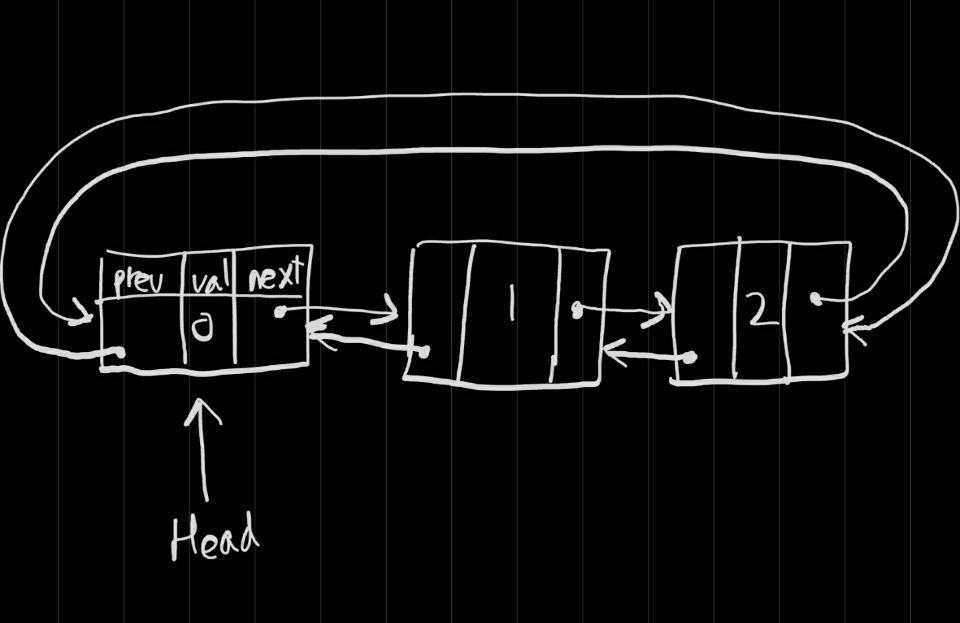 prev val next
0 1 2
Head